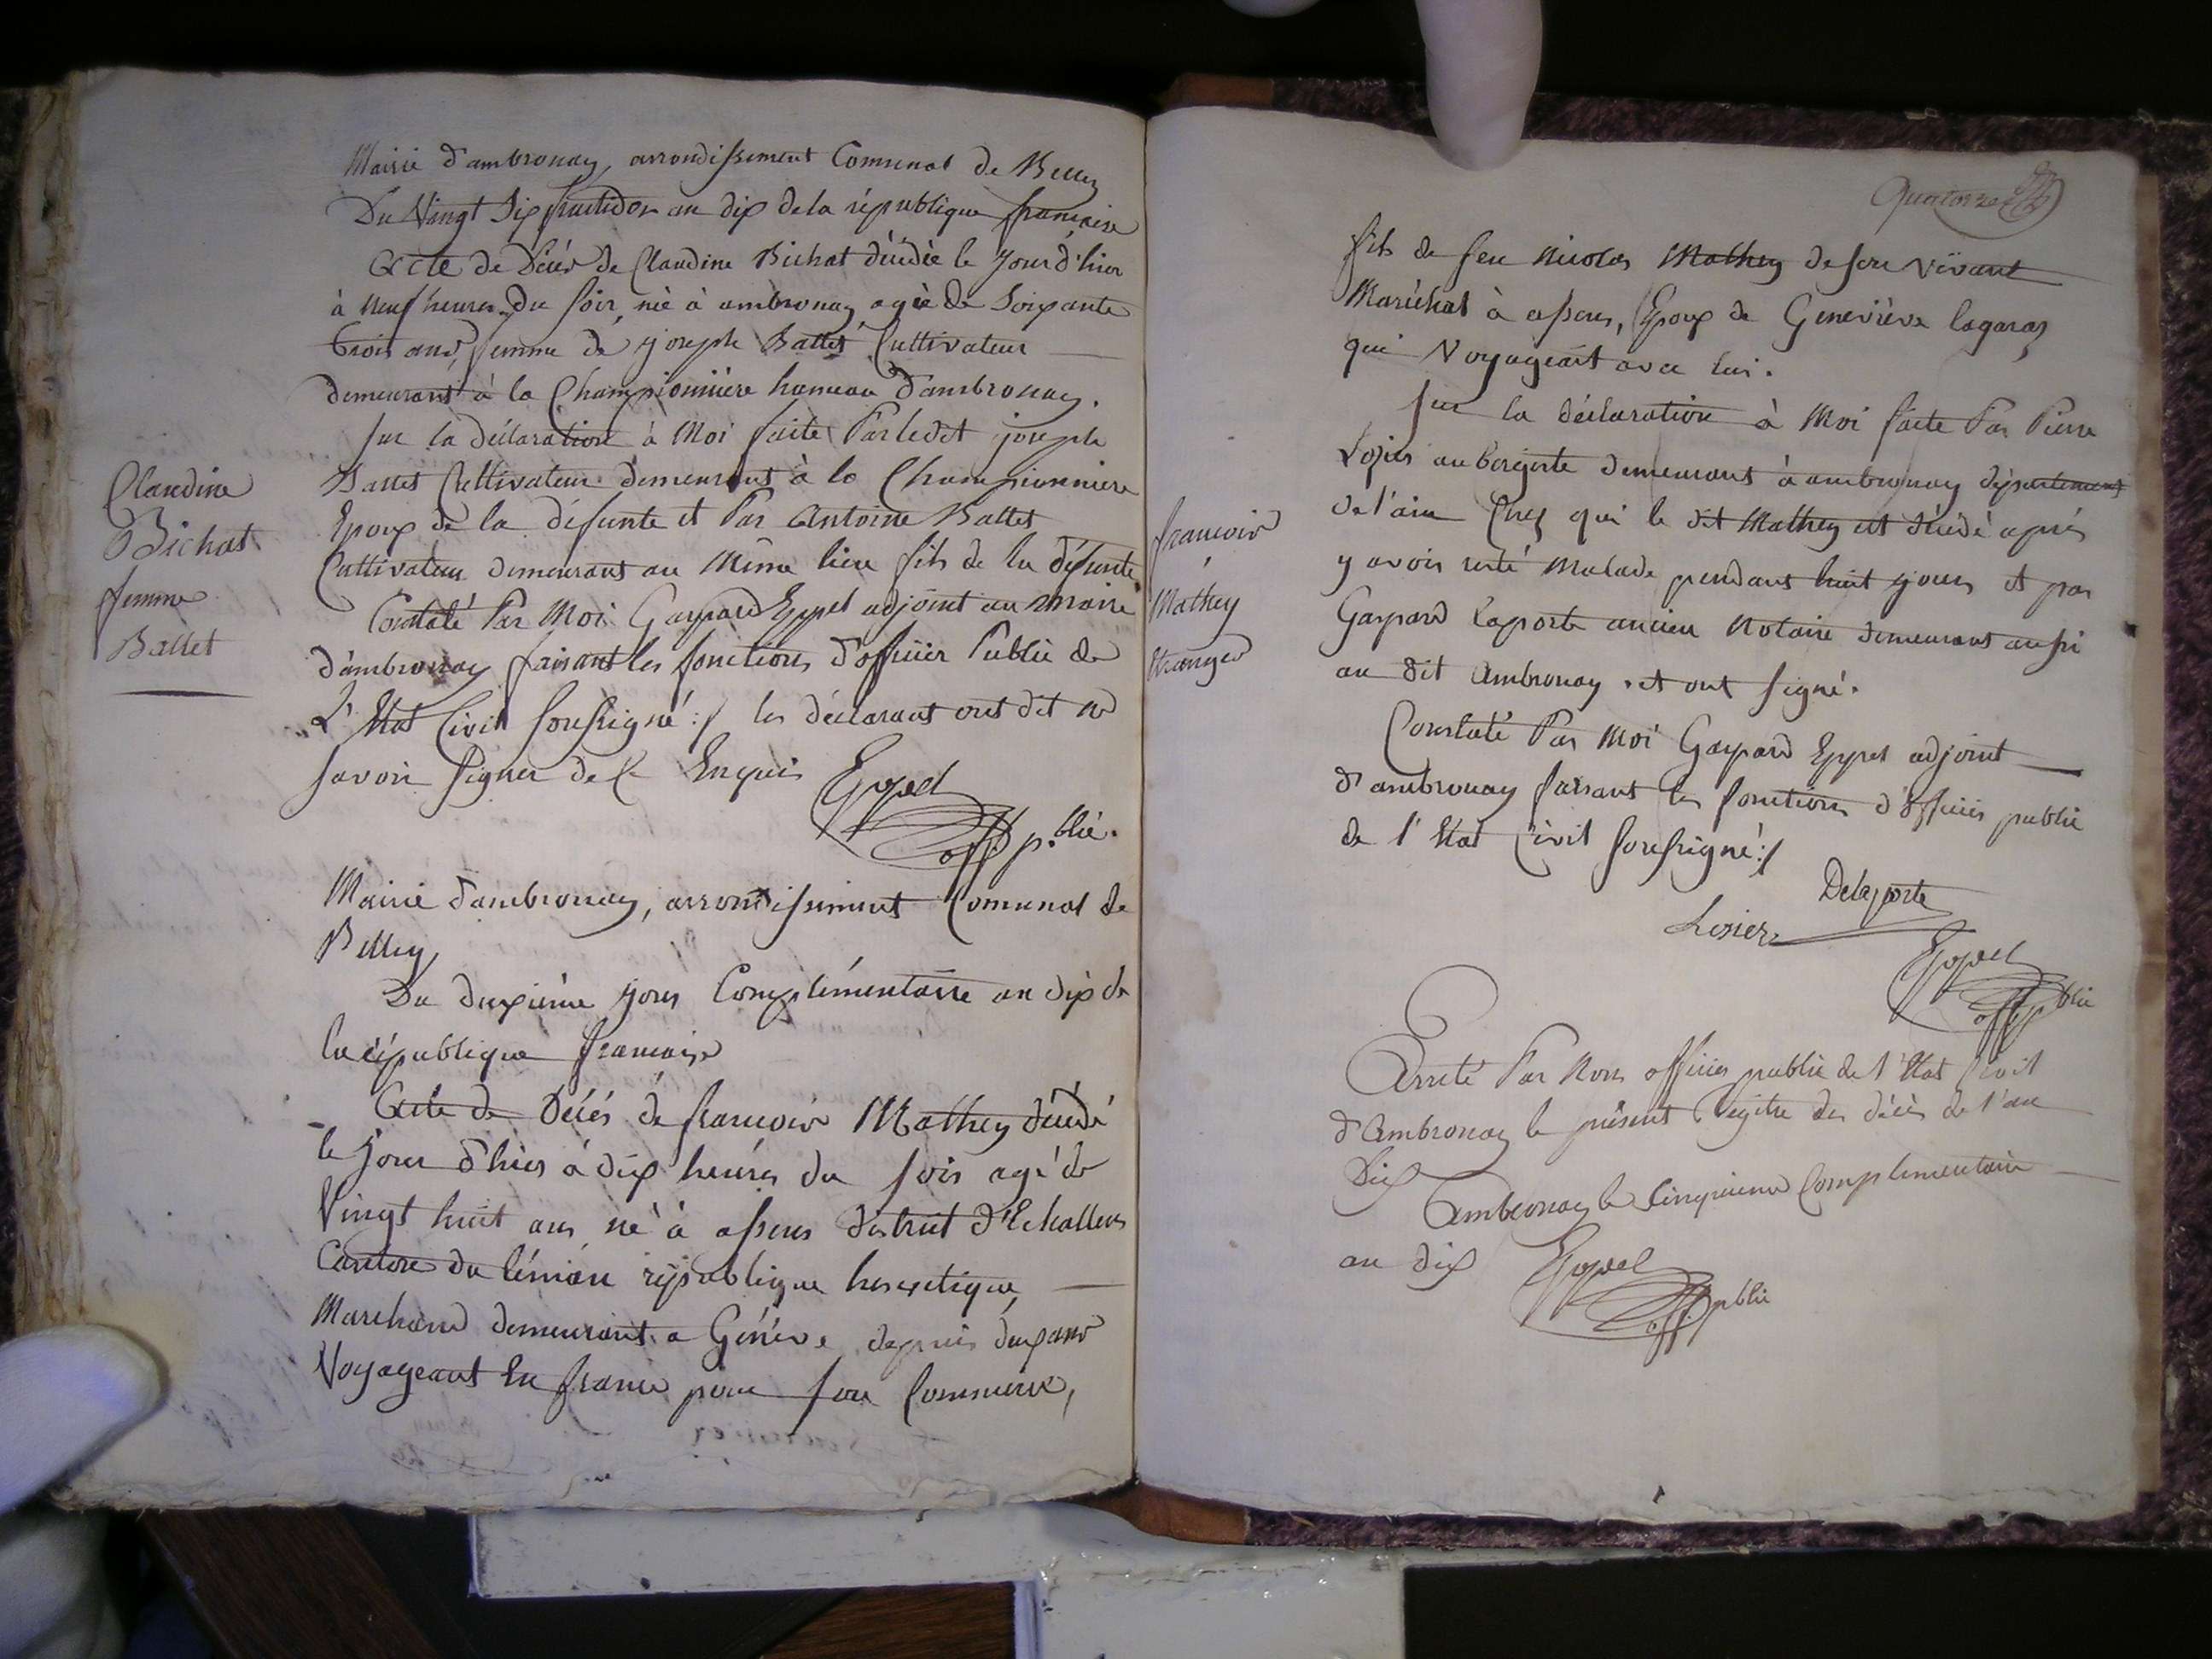 Mairie d'ambronay, arrondissement Comunal de Belley
Du Vingt Six fructidor an dix de la république française
Acte de Décés de Claudine Bichat décédée le jour d'hier
à neuf heures du soir, née à ambronay agée de soixante
trois ans, femme de joseph Ballet Cultivateur
demeurant à la Championnière hameau d'ambronay.
Sur la déclaration à Moi faite Par ledit joseph
Ballet Cultivateur demeurant à la Championniere
Epoux de la défunte et Par Antoine Ballet
Cultivateur demeurant au Même lieu fils de la défunte
Constaté Par Moi Gaspard Eppel adjoint au maire
d'ambronay faisant les fonctions d'officier Public de
L'Etat Civil soussigné :/ les déclarants ont dit ne
savoir signer de ce Enquis
Eppel
off. p.blic.
Claudine
Bichat
femme
Ballet
Mairie d'ambronay, arrondissement Comunal de
Belley
Du deuxième jour Complémentaire an dix de
la république française
Acte de Décés de francois Mathey décédé
le jour d'hier à dix heures du soir agé de
Vingt huit ans né à assens district d'Echallens
Canton du léman république helvetique,
Marchand demeurant a Génève depuis deux ans
Voyageant en france pour son Commerce,
Quatorze
fils de feu Nicolas Mathey de son vivant
Maréchal à assens, Epoux de Geneviève lagaraz
qui Voyageait avec lui.
Sur la déclaration à Moi faite Par Pierre
Lozier aubergiste demeurant à ambronay département
de l'ain Chez qui le dit Mathey est décédé après
y avoir resté Malade pendant huit jours et par
Gaspard Laporte ancien Notaire demeurant aussi
au dit Ambronay . et ont signé.
Constaté Par Moi Gaspard Eppel adjoint
d'ambronay faisant les fonctions d'officier public
de l'Etat Civil soussigné :/
francois
Mathey
étranger
Delaporte
Lozier
Eppel
off. public
Arreté Par Nous officier public de l'Etat Civil
d'Ambronay le présent Registre des décès de l'an
Dix
Ambronay le Cinquieme Complementaire
an dix
Eppel
off. public